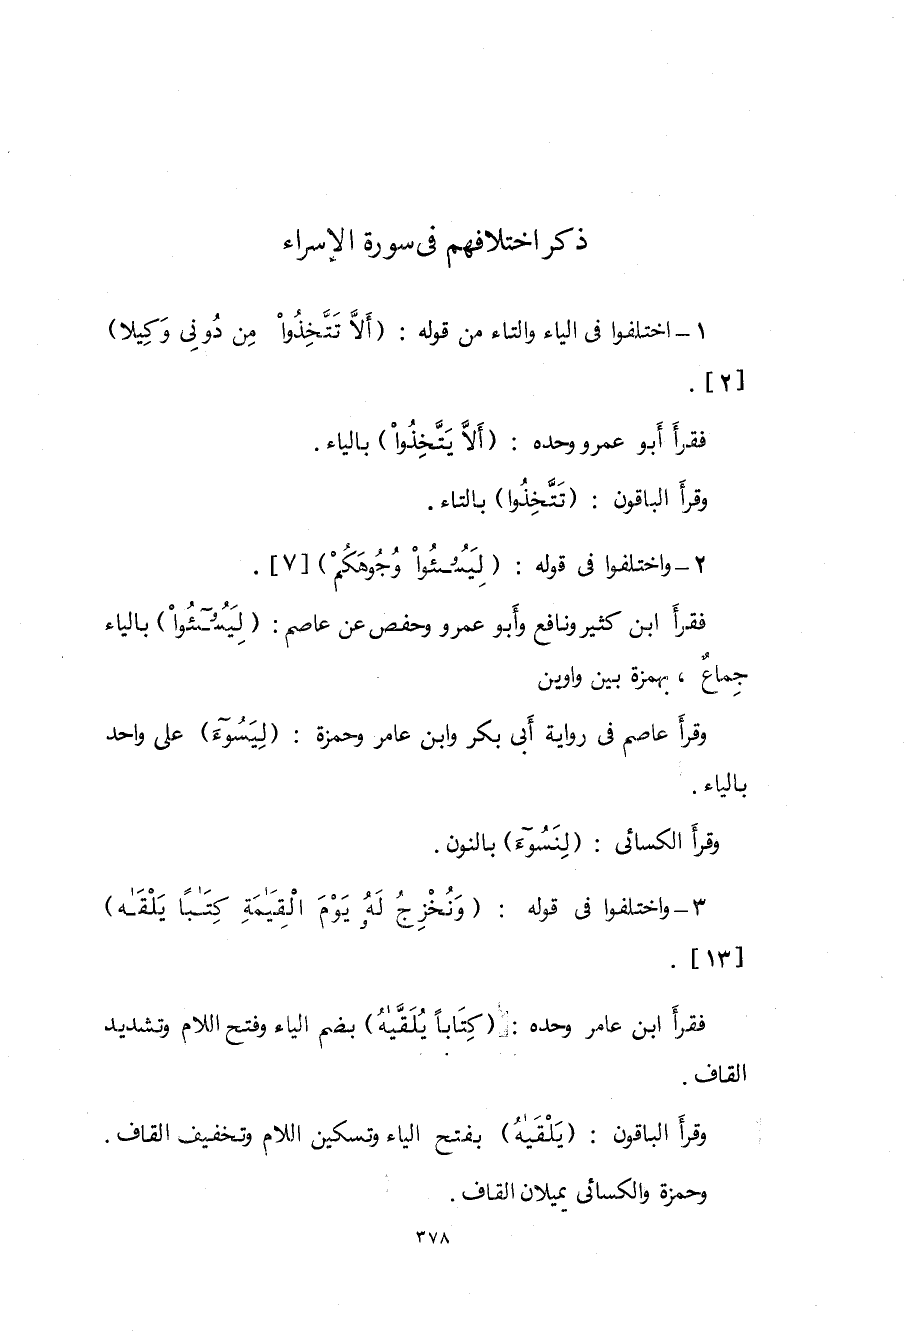 ذكر اختلافهم فى سورة الإسراء
١ – اختلفوا فى الياء والتاء من قوله : (أَلَّا تَتَّخِذُواْ مِن دُونِى وَكِيلا)
[٢] .
فقرأَ أَبو عمرو وحده : (أَلاَّ يَتَّخِذُواْ) بالياء .
وقرأَ الباقون : (تَتَّخِذُوا) بالتاء .
٢ – واختلفوا فى قوله : (لِيَسُـئُواْ وُجُوهَكُمْ) [٧] .
فقرأَ ابن كثير ونافع وأَبو عمرو وحفص عن عاصم : (لِيَسُـٓئُواْ) بالياء
جِماعٌ ، بهمزة بين واوين
وقرأَ عاصم فى رواية أَبى بكر وابن عامر وحمزة : (لِيَسُوٓءَ) على واحد
بالياء .
وقرأَ الكسائى : (لِنَسُوٓءَ) بالنون .
٣ – واختلفوا فى قوله : (وَنُخْرِجُ لَهُۥ يَوْمَ الْقِيَٰمَةِ كِتَٰبًا يَلْقَىٰه)
[١٣] .
فقرأَ ابن عامر وحده : (كِتَاباً يُلَقَّىٰهُ) بضم الياء وفتح اللام وتشديد
القاف .
وقرأَ الباقون : (يَلْقَىٰهُ) بفتح الياء وتسكين اللام وتخفيف القاف .
وحمزة والكسائى يميلان القاف .
٣٧٨